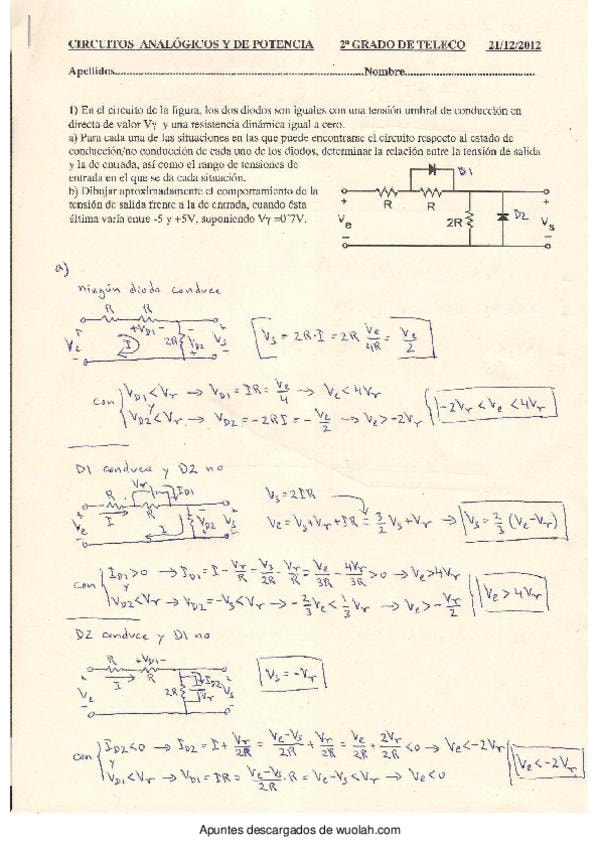 CIRCUITOS ANALÓGICOS Y DE POTENCIA 2º GRADO DE TELECO 21/12/2012
Apellidos........................................Nombre........................................
1) En el circuito de la figura, los dos diodos son iguales con una tensión umbral de conducción en
directa de valor Vγ y una resistencia dinámica igual a cero.
a) Para cada una de las situaciones en las que puede encontrarse el circuito respecto al estado de
conducción/no conducción de cada uno de los diodos, determinar la relación entre la tensión de salida
y la de entrada, así como el rango de tensiones de
entrada en el que se da cada situación.
b) Dibujar aproximadamente el comportamiento de la
tensión de salida frente a la de entrada, cuando ésta
última varía entre -5 y +5V, suponiendo Vγ =0´7V.
D1
+ R R +
Ve 2R D2 Vs
- -
a)
ningún diodo conduce
R R
+VD1-
Ve I 2R VD2 Vs
Vs = 2R·I = 2R Ve/4R = Ve/2
con { VD1<Vr → VD1 = IR = Ve/4 → Ve < 4Vr
y
VD2<Vr → VD2 = -2RI = -Ve/2 → Ve > -2Vr { -2Vr < Ve < 4Vr
D1 conduce y D2 no
R Vr ID1
Ve I R I VD2 Vs
Vs = 2IR
Ve = Vs+Vr+IR = 3/2 Vs + Vr → Vs = 2/3 (Ve-Vr)
con { ID1>0 → ID1 = I - Vr/R = Vs/2R - Vr/R = Ve/3R - 4Vr/3R > 0 → Ve>4Vr
y
VD2<Vr → VD2 = -Vs<Vr → -2/3 Ve < 1/3 Vr → Ve > -Vr/2 { Ve > 4Vr
D2 conduce y D1 no
R +VD1-
Ve I R 2R ID2 Vr Vs
Vs = -Vr
con { ID2<0 → ID2 = I + Vr/2R = Ve-Vs/2R + Vr/2R = Ve/2R + 2Vr/2R < 0 → Ve<-2Vr
y
VD1<Vr → VD1 = IR = Ve-Vs/2R · R = Ve-Vs<Vr → Ve<0 { Ve < -2Vr
Apuntes descargados de wuolah.com